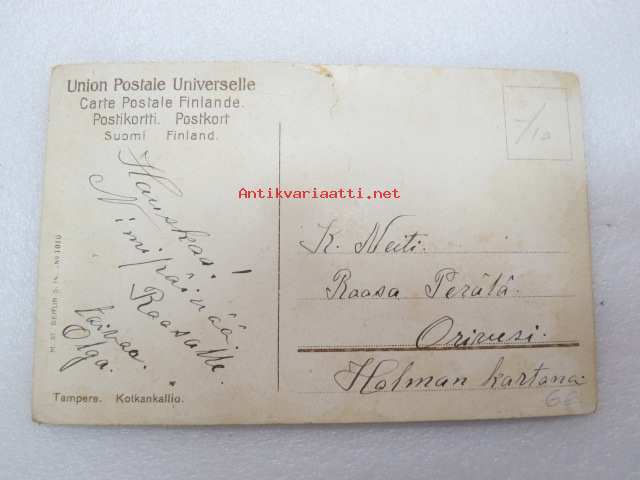 Union Postale Universelle
Carte Postale Finlande.
Postikortti. Postkort
Suomi Finland.
Hauskaa!
Nimipäivää.
Raasalle.
toivoo.
Olga.
Tampere. Kotkankallio.
Antikvariaatti.net
K. Neiti.
Raasa Perälä.
Orivesi.
Holman kartano
68